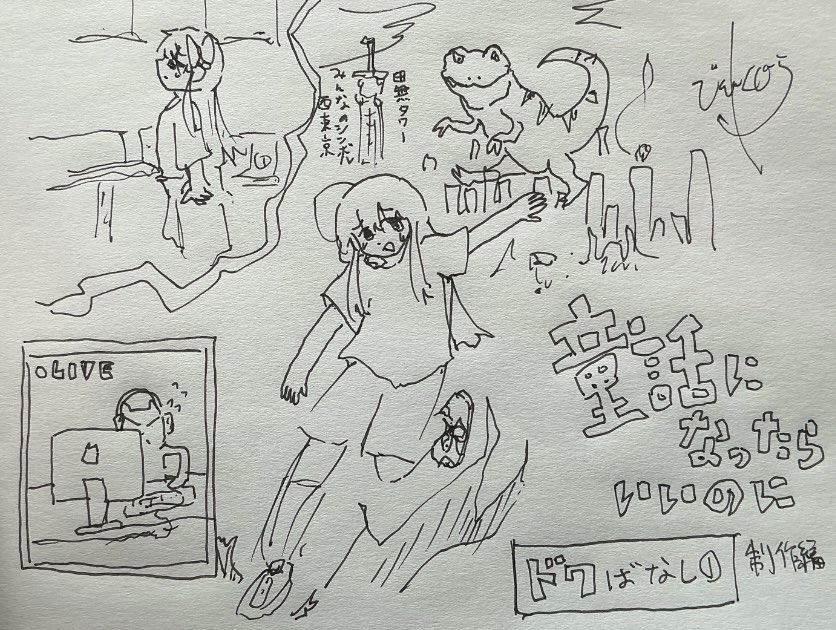 田無タワー
みんなのシンボル
西東京
①
でんくのう
●LIVE
童話に
なったら
いいのに
ドワばなし①
制作編